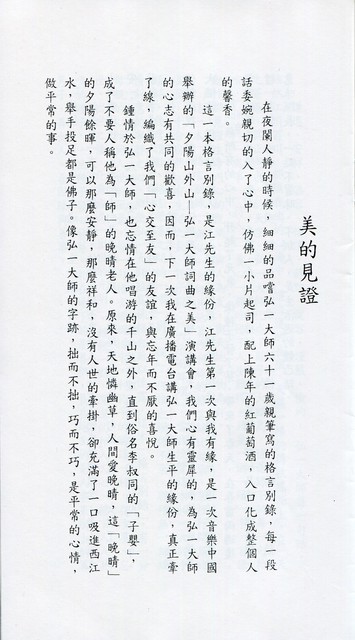 美的見證
在夜闌人靜的時候，細細的品嚐弘一大師六十一歲親筆寫的格言別錄，每一段
話委婉親切的入了心中，仿佛一小片起司，配上陳年的紅葡萄酒，入口化成整個人
的馨香。
這一本格言別錄，是江先生的緣份，江先生第一次與我有緣，是一次音樂中國
舉辦的「夕陽山外山—弘一大師詞曲之美」演講會，我們心有靈犀的，為弘一大師
的心志有共同的歡喜，因而，下一次我在廣播電台講弘一大師生平的緣份，真正牽
了線，編織了我們「心交至友」的友誼，與忘年而不厭的喜悅。
鍾情於弘一大師，也忘情在他唱游的千山之外，直到俗名李叔同的「子嬰」，
成了不要人稱他為「師」的晚晴老人。原來，天地憐幽草，人間愛晚晴，這「晚晴」
的夕陽餘暉，可以那麼安靜，那麼祥和，沒有人世的牽掛，卻充滿了一口吸進西江
水，舉手投足都是佛子。像弘一大師的字跡，拙而不拙，巧而不巧，是平常的心情，
做平常的事。